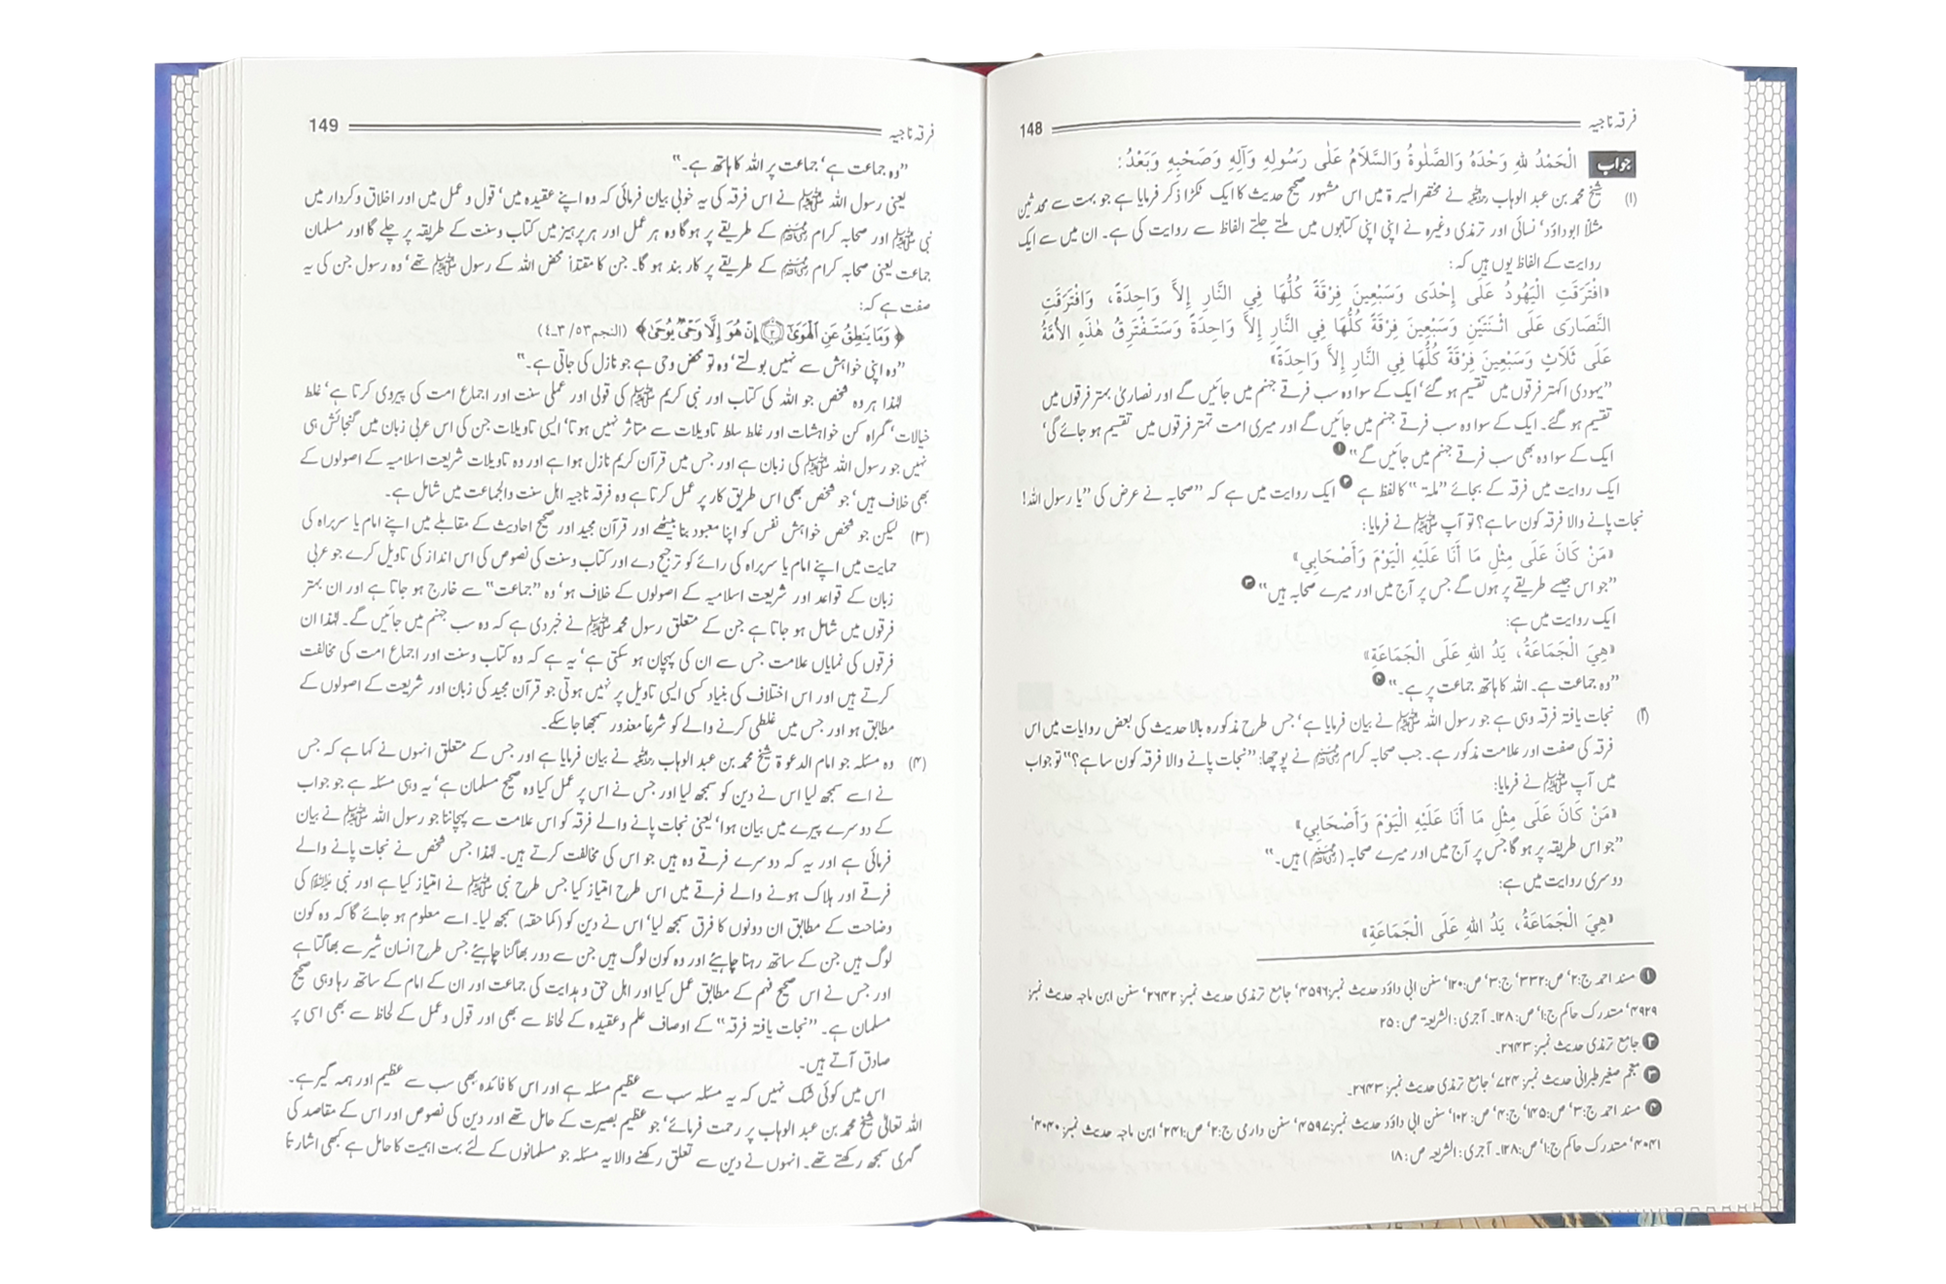 فرقہ ناجیہ 148
جواب الْحَمْدُ لِلهِ وَحْدَهُ وَالصَّلٰوةُ وَالسَّلَامُ عَلٰى رَسُولِهِ وَآلِهِ وَصَحْبِهِ وَبَعْدُ:
(۱) شیخ محمد بن عبد الوہاب رحمہ اللہ نے مختصر السیرۃ میں اس مشہور صحیح حدیث کا ایک ٹکڑا ذکر فرمایا ہے جو بہت سے محدثین
مثلاً ابوداؤد‘ نسائی اور ترمذی وغیرہ نے اپنی اپنی کتابوں میں ملتے جلتے الفاظ سے روایت کی ہے۔ ان میں سے ایک
روایت کے الفاظ یوں ہیں کہ:
«افْتَرَقَتِ الْيَهُودُ عَلَى إِحْدَى وَسَبْعِينَ فِرْقَةً كُلُّهَا فِي النَّارِ إِلاَّ وَاحِدَةً، وَافْتَرَقَتِ
النَّصَارَى عَلَى اثْنَتَيْنِ وَسَبْعِينَ فِرْقَةً كُلُّهَا فِي النَّارِ إِلاَّ وَاحِدَةً وَسَتَفْتَرِقُ هٰذِهِ الأُمَّةُ
عَلَى ثَلاَثٍ وَسَبْعِينَ فِرْقَةً كُلُّهَا فِي النَّارِ إِلاَّ وَاحِدَةً»
”یہودی اکہتر فرقوں میں تقسیم ہو گئے‘ ایک کے سوا وہ سب فرقے جہنم میں جائیں گے اور نصاریٰ بہتر فرقوں میں
تقسیم ہو گئے۔ ایک کے سوا وہ سب فرقے جہنم میں جائیں گے اور میری امت تہتر فرقوں میں تقسیم ہو جائے گی‘
ایک کے سوا وہ بھی سب فرقے جہنم میں جائیں گے“ ۱
ایک روایت میں فرقہ کے بجائے ”ملۃ“ کا لفظ ہے ۲ ایک روایت میں ہے کہ ”صحابہ نے عرض کی ”یا رسول اللہ!
نجات پانے والا فرقہ کون سا ہے؟ تو آپ ﷺ نے فرمایا:
«مَنْ كَانَ عَلَى مِثْلِ مَا أَنَا عَلَيْهِ الْيَوْمَ وَأَصْحَابِي»
”جو اس جیسے طریقے پر ہوں گے جس پر آج میں اور میرے صحابہ ہیں“ ۳
ایک روایت میں ہے:
«هِيَ الْجَمَاعَةُ، يَدُ اللهِ عَلَى الْجَمَاعَةِ»
”وہ جماعت ہے۔ اللہ کا ہاتھ جماعت پر ہے۔“ ۴
(۲) نجات یافتہ فرقہ وہی ہے جو رسول اللہ ﷺ نے بیان فرمایا ہے‘ جس طرح مذکورہ بالا حدیث کی بعض روایات میں اس
فرقہ کی صفت اور علامت مذکور ہے۔ جب صحابہ کرام رضی اللہ عنہم نے پوچھا: ”نجات پانے والا فرقہ کون سا ہے؟“ تو جواب
میں آپ ﷺ نے فرمایا:
«مَنْ كَانَ عَلَى مِثْلِ مَا أَنَا عَلَيْهِ الْيَوْمَ وَأَصْحَابِي»
”جو اس طریقہ پر ہو گا جس پر آج میں اور میرے صحابہ (رضی اللہ عنہم) ہیں۔“
دوسری روایت میں ہے:
«هِيَ الْجَمَاعَةُ، يَدُ اللهِ عَلَى الْجَمَاعَةِ»
۱ مسند احمد ج:۲‘ ص:۳۳۲‘ ج:۳‘ ص:۱۲۰‘ سنن ابی داؤد حدیث نمبر:۴۵۹۶‘ جامع ترمذی حدیث نمبر: ۲۶۴۲‘ سنن ابن ماجہ حدیث نمبر:
۴۹۲۹‘ متدرک حاکم ج:۱‘ ص:۱۲۸۔ آجری: الشریعۃ ص: ۲۵
۲ جامع ترمذی حدیث نمبر: ۲۶۴۳۔
۳ معجم صغیر طبرانی حدیث نمبر: ۷۲۴‘ جامع ترمذی حدیث نمبر: ۲۶۴۳۔
۴ مسند احمد ج:۳‘ ص:۱۴۵‘ ج:۴‘ ص: ۱۰۲‘ سنن ابی داؤد حدیث نمبر:۴۵۹۷‘ سنن دارمی ج:۲‘ ص:۲۴۱‘ ابن ماجہ حدیث نمبر: ۴۰۴۰‘
۴۰۴۱‘ متدرک حاکم ج:۱‘ ص:۱۲۸۔ آجری: الشریعہ ص: ۱۸
فرقہ ناجیہ 149
”وہ جماعت ہے‘ جماعت پر اللہ کا ہاتھ ہے۔“
یعنی رسول اللہ ﷺ نے اس فرقہ کی یہ خوبی بیان فرمائی کہ وہ اپنے عقیدہ میں‘ قول و عمل میں اور اخلاق و کردار میں
نبی ﷺ اور صحابہ کرام رضی اللہ عنہم کے طریقے پر ہو گا وہ ہر عمل اور ہر پرہیز میں کتاب و سنت کے طریقہ پر چلے گا اور مسلمان
جماعت یعنی صحابہ کرام رضی اللہ عنہم کے طریقے پر کاربند ہو گا۔ جن کا مقتدا محض اللہ کے رسول ﷺ تھے‘ وہ رسول جن کی یہ
صفت ہے کہ:
﴿وَمَا يَنطِقُ عَنِ الْهَوَىٰ ۝٣ إِنْ هُوَ إِلَّا وَحْىٌ يُوحَىٰ﴾ (النجم ۵۳/ ۳۔۴)
”وہ اپنی خواہش سے نہیں بولتے‘ وہ تو محض وحی ہے جو نازل کی جاتی ہے۔“
لہٰذا ہر وہ شخص جو اللہ کی کتاب اور نبی کریم ﷺ کی قولی اور عملی سنت اور اجماع امت کی پیروی کرتا ہے‘ غلط
خیالات‘ گمراہ کن خواہشات اور غلط سلط تاویلات سے متاثر نہیں ہوتا‘ ایسی تاویلات جن کی اس عربی زبان میں گنجائش ہی
نہیں جو رسول اللہ ﷺ کی زبان ہے اور جس میں قرآن کریم نازل ہوا ہے اور وہ تاویلات شریعت اسلامیہ کے اصولوں کے
بھی خلاف ہیں‘ جو شخص بھی اس طریق کار پر عمل کرتا ہے وہ فرقہ ناجیہ اہل سنت والجماعت میں شامل ہے۔
(۳) لیکن جو شخص خواہش نفس کو اپنا معبود بنا بیٹھے اور قرآن مجید اور صحیح احادیث کے مقابلے میں اپنے امام یا سربراہ کی
حمایت میں اپنے امام یا سربراہ کی رائے کو ترجیح دے اور کتاب و سنت کی نصوص کی اس انداز کی تاویل کرے جو عربی
زبان کے قواعد اور شریعت اسلامیہ کے اصولوں کے خلاف ہو‘ وہ ”جماعت“ سے خارج ہو جاتا ہے اور ان بہتر
فرقوں میں شامل ہو جاتا ہے جن کے متعلق رسول محمد ﷺ نے خبر دی ہے کہ وہ سب جہنم میں جائیں گے۔ لہٰذا ان
فرقوں کی نمایاں علامت جس سے ان کی پہچان ہو سکتی ہے‘ یہ ہے کہ وہ کتاب و سنت اور اجماع امت کی مخالفت
کرتے ہیں اور اس اختلاف کی بنیاد کسی ایسی تاویل پر نہیں ہوتی جو قرآن مجید کی زبان اور شریعت کے اصولوں کے
مطابق ہو اور جس میں غلطی کرنے والے کو شرعاً معذور سمجھا جا سکے۔
(۴) وہ مسئلہ جو امام الدعوۃ شیخ محمد بن عبد الوہاب رحمہ اللہ نے بیان فرمایا ہے اور جس کے متعلق انہوں نے کہا ہے کہ جس
نے اسے سمجھ لیا اس نے دین کو سمجھ لیا اور جس نے اس پر عمل کیا وہ صحیح مسلمان ہے‘ یہ وہی مسئلہ ہے جو جواب
کے دوسرے پیرے میں بیان ہوا‘ یعنی نجات پانے والے فرقہ کو اس علامت سے پہچاننا جو رسول اللہ ﷺ نے بیان
فرمائی ہے اور یہ کہ دوسرے فرقے وہ ہیں جو اس کی مخالفت کرتے ہیں۔ لہٰذا جس شخص نے نجات پانے والے
فرقے اور ہلاک ہونے والے فرقے میں اس طرح امتیاز کیا جس طرح نبی ﷺ نے امتیاز کیا ہے اور نبی ﷺ کی
وضاحت کے مطابق ان دونوں کا فرق سمجھ لیا‘ اس نے دین کو (کما حقہ) سمجھ لیا۔ اسے معلوم ہو جائے گا کہ وہ کون
لوگ ہیں جن کے ساتھ رہنا چاہیئے اور وہ کون لوگ ہیں جن سے دور بھاگنا چاہیئے جس طرح انسان شیر سے بھاگتا ہے
اور جس نے اس صحیح فہم کے مطابق عمل کیا اور اہل حق و ہدایت کی جماعت اور ان کے امام کے ساتھ رہا وہی صحیح
مسلمان ہے۔ ”نجات یافتہ فرقہ“ کے اوصاف علم و عقیدہ کے لحاظ سے بھی اور قول و عمل کے لحاظ سے بھی اسی پر
صادق آتے ہیں۔
اس میں کوئی شک نہیں کہ یہ مسئلہ سب سے عظیم مسئلہ ہے اور اس کا فائدہ بھی سب سے عظیم اور ہمہ گیر ہے۔
اللہ تعالیٰ شیخ محمد بن عبد الوہاب پر رحمت فرمائے‘ جو عظیم بصیرت کے حامل تھے اور دین کی نصوص اور اس کے مقاصد کی
گہری سمجھ رکھتے تھے۔ انہوں نے دین سے تعلق رکھنے والا یہ مسئلہ جو مسلمانوں کے لئے بہت اہمیت کا حامل ہے کبھی اشارتاً